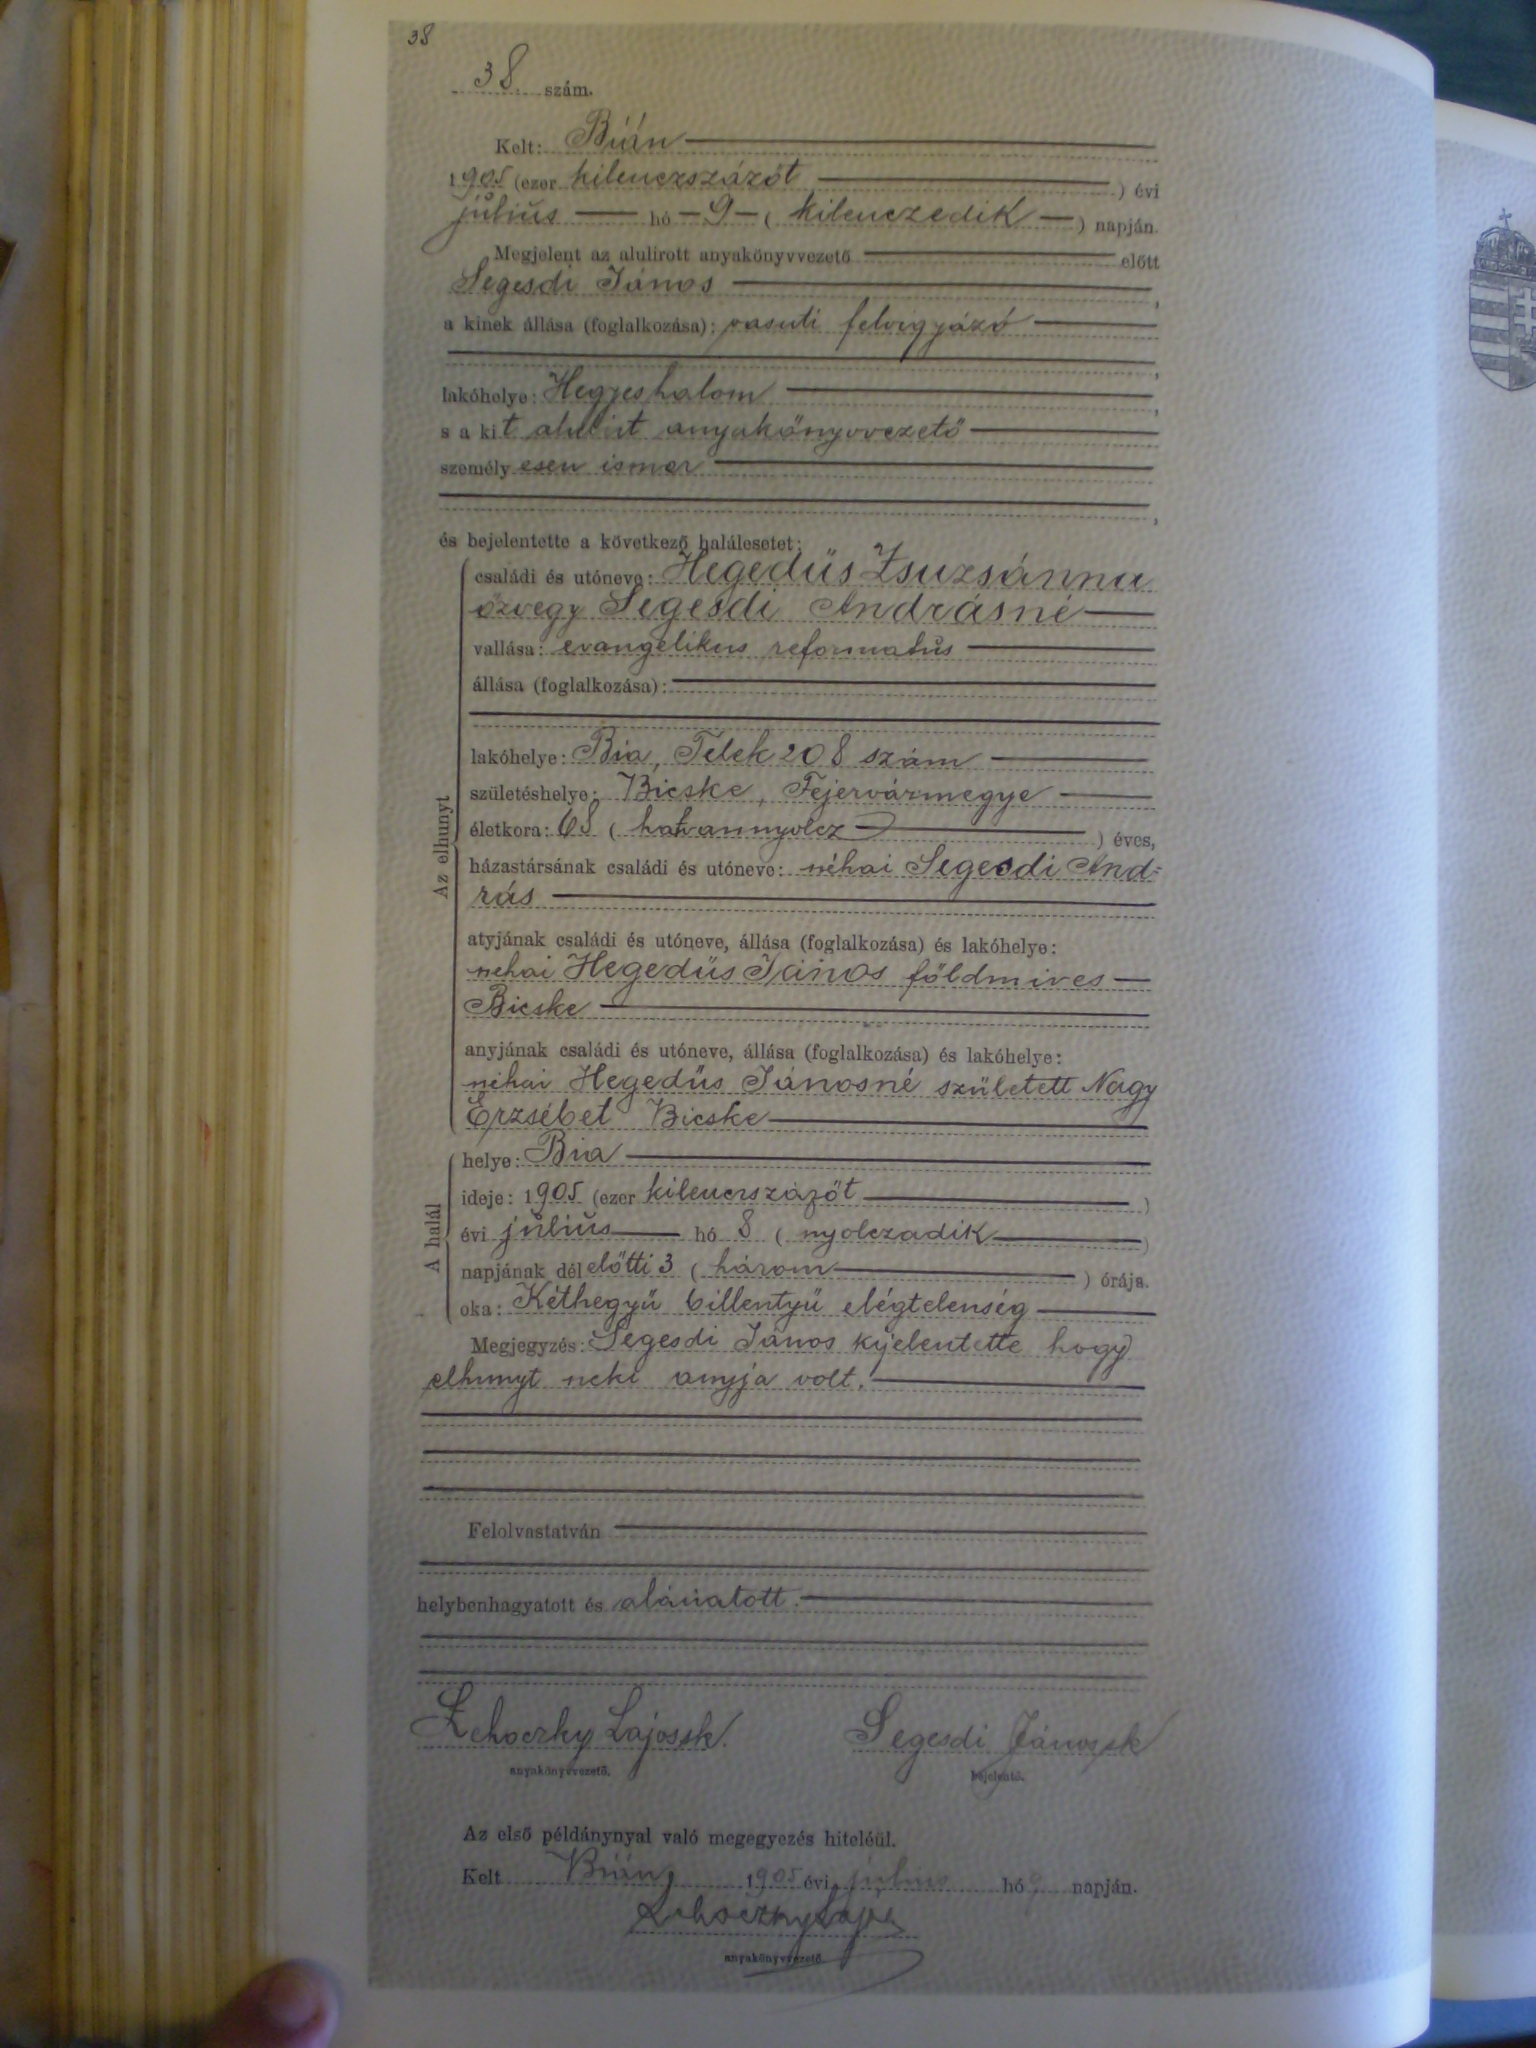 38
38. szám.
Kelt: Bián
1905 (ezer kilenczszázöt ) évi
július hó 9 ( kilenczedik ) napján.
Megjelent az alulirott anyakönyvvezető előtt
Segesdi János ,
a kinek állása (foglalkozása): vasuti felvigyázó
,
lakóhelye: Hegyeshalom ,
s a kit alulirt anyakönyvvezető
személyesen ismer
,
és bejelentette a következő halálesetet:
Az elhunyt
családi és utóneve: Hegedüs Zsuzsánna
özvegy Segesdi Andrásné
vallása: evangelikus reformatus
állása (foglalkozása):
lakóhelye: Bia, Telek 208 szám
születéshelye: Bicske, Fejervármegye
életkora: 68 ( hatvannyolcz ) éves,
házastársának családi és utóneve: néhai Segesdi And=
rás
atyjának családi és utóneve, állása (foglalkozása) és lakóhelye:
néhai Hegedüs János földmives
Bicske
anyjának családi és utóneve, állása (foglalkozása) és lakóhelye:
néhai Hegedüs Jánosné született Nagy
Erzsébet Bicske
A halál
helye: Bia
ideje: 1905 (ezer kilenczszázöt )
évi július hó 8 ( nyolczadik )
napjának délelőtti 3 ( három ) órája.
oka: Kéthegyű billentyű elégtelenség
Megjegyzés: Segesdi János kijelentette hogy
elhunyt neki anyja volt.
Felolvastatván
helybenhagyatott és aláiratott.
Lehoczky Lajos sk. Segesdi János sk
anyakönyvvezető. bejelentő.
Az első példánynyal való megegyezés hiteléül.
Kelt Bián, 1905 évi július hó 9 napján.
Lehoczky Lajos
anyakönyvvezető